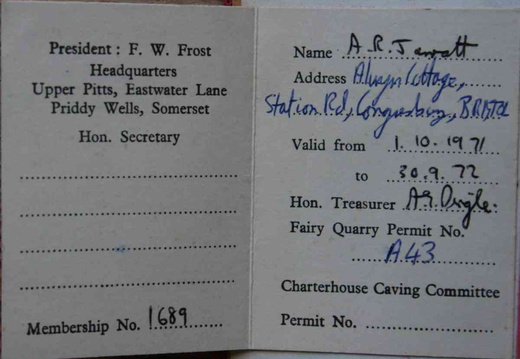 President : F. W. Frost
Headquarters
Upper Pitts, Eastwater Lane
Priddy Wells, Somerset
Hon. Secretary
Membership No. 1689
Name A.R. Jarratt
Address Alwyn Cottage,
Station Rd, Congresbury, BRISTOL
Valid from 1.10.1971
to 30.9.72
Hon. Treasurer
Fairy Quarry Permit No.
A43
Charterhouse Caving Committee
Permit No.